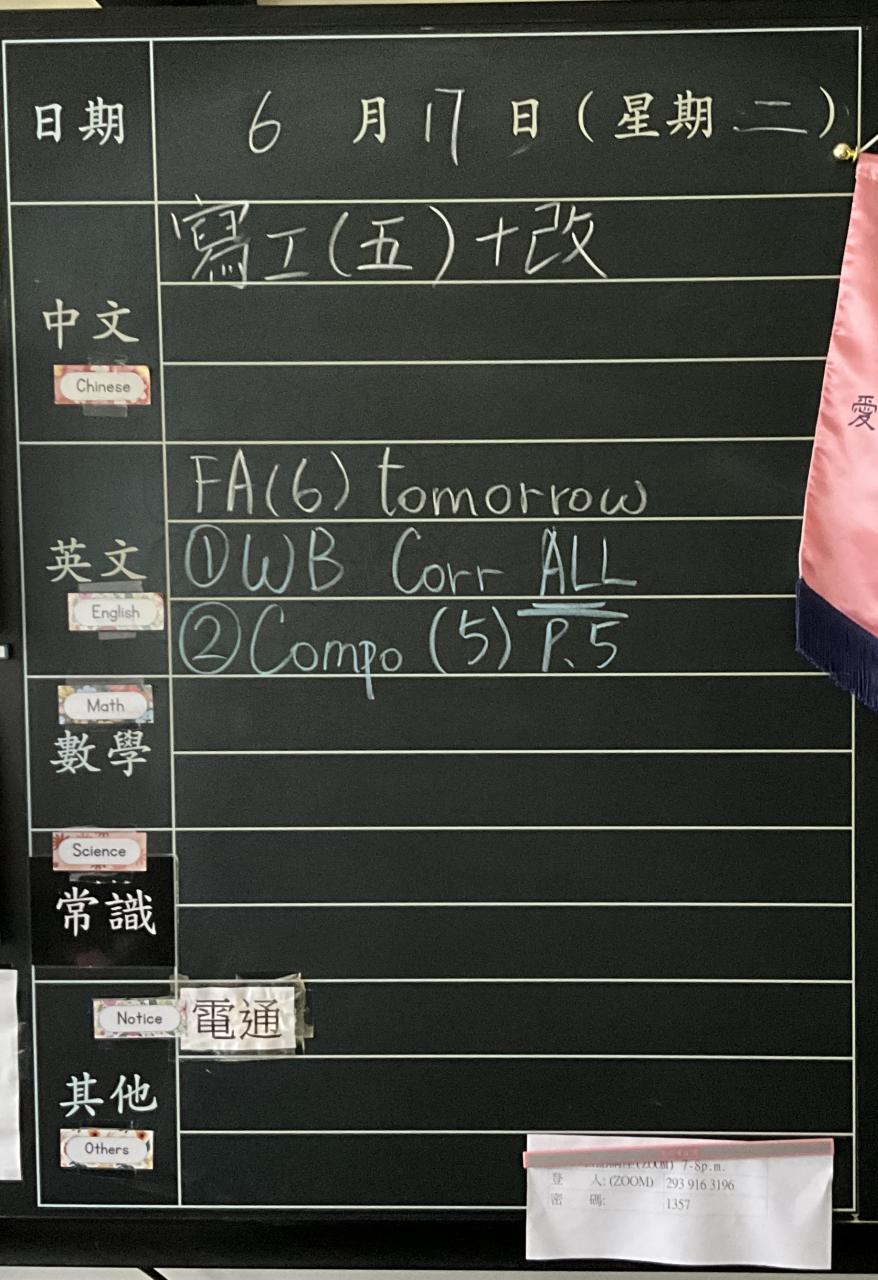 日期 6月17日(星期二)
寫工(五)+改
中文
Chinese
FA(6) tomorrow
①WB Corr ALL
英文
English
②Compo (5) P.5
Math
數學
Science
常識
Notice 電通
其他
Others
愛
(ZOOM) 7-8p.m.
登 人: (ZOOM) 293 916 3196
密 碼: 1357